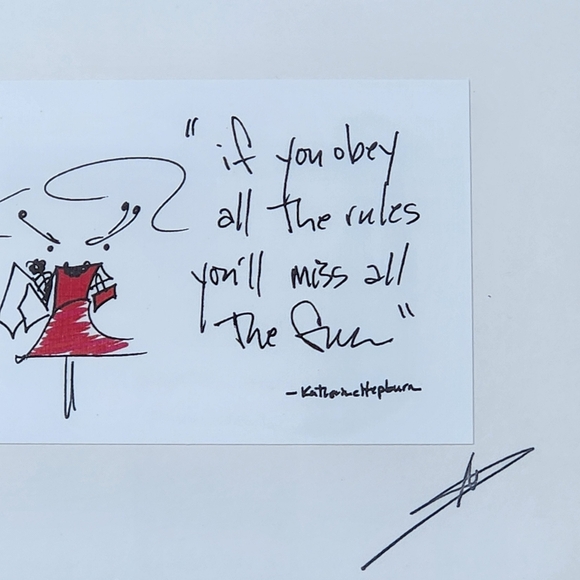 "if you obey
all the rules
you'll miss all
the fun"
-Katharine Hepburn